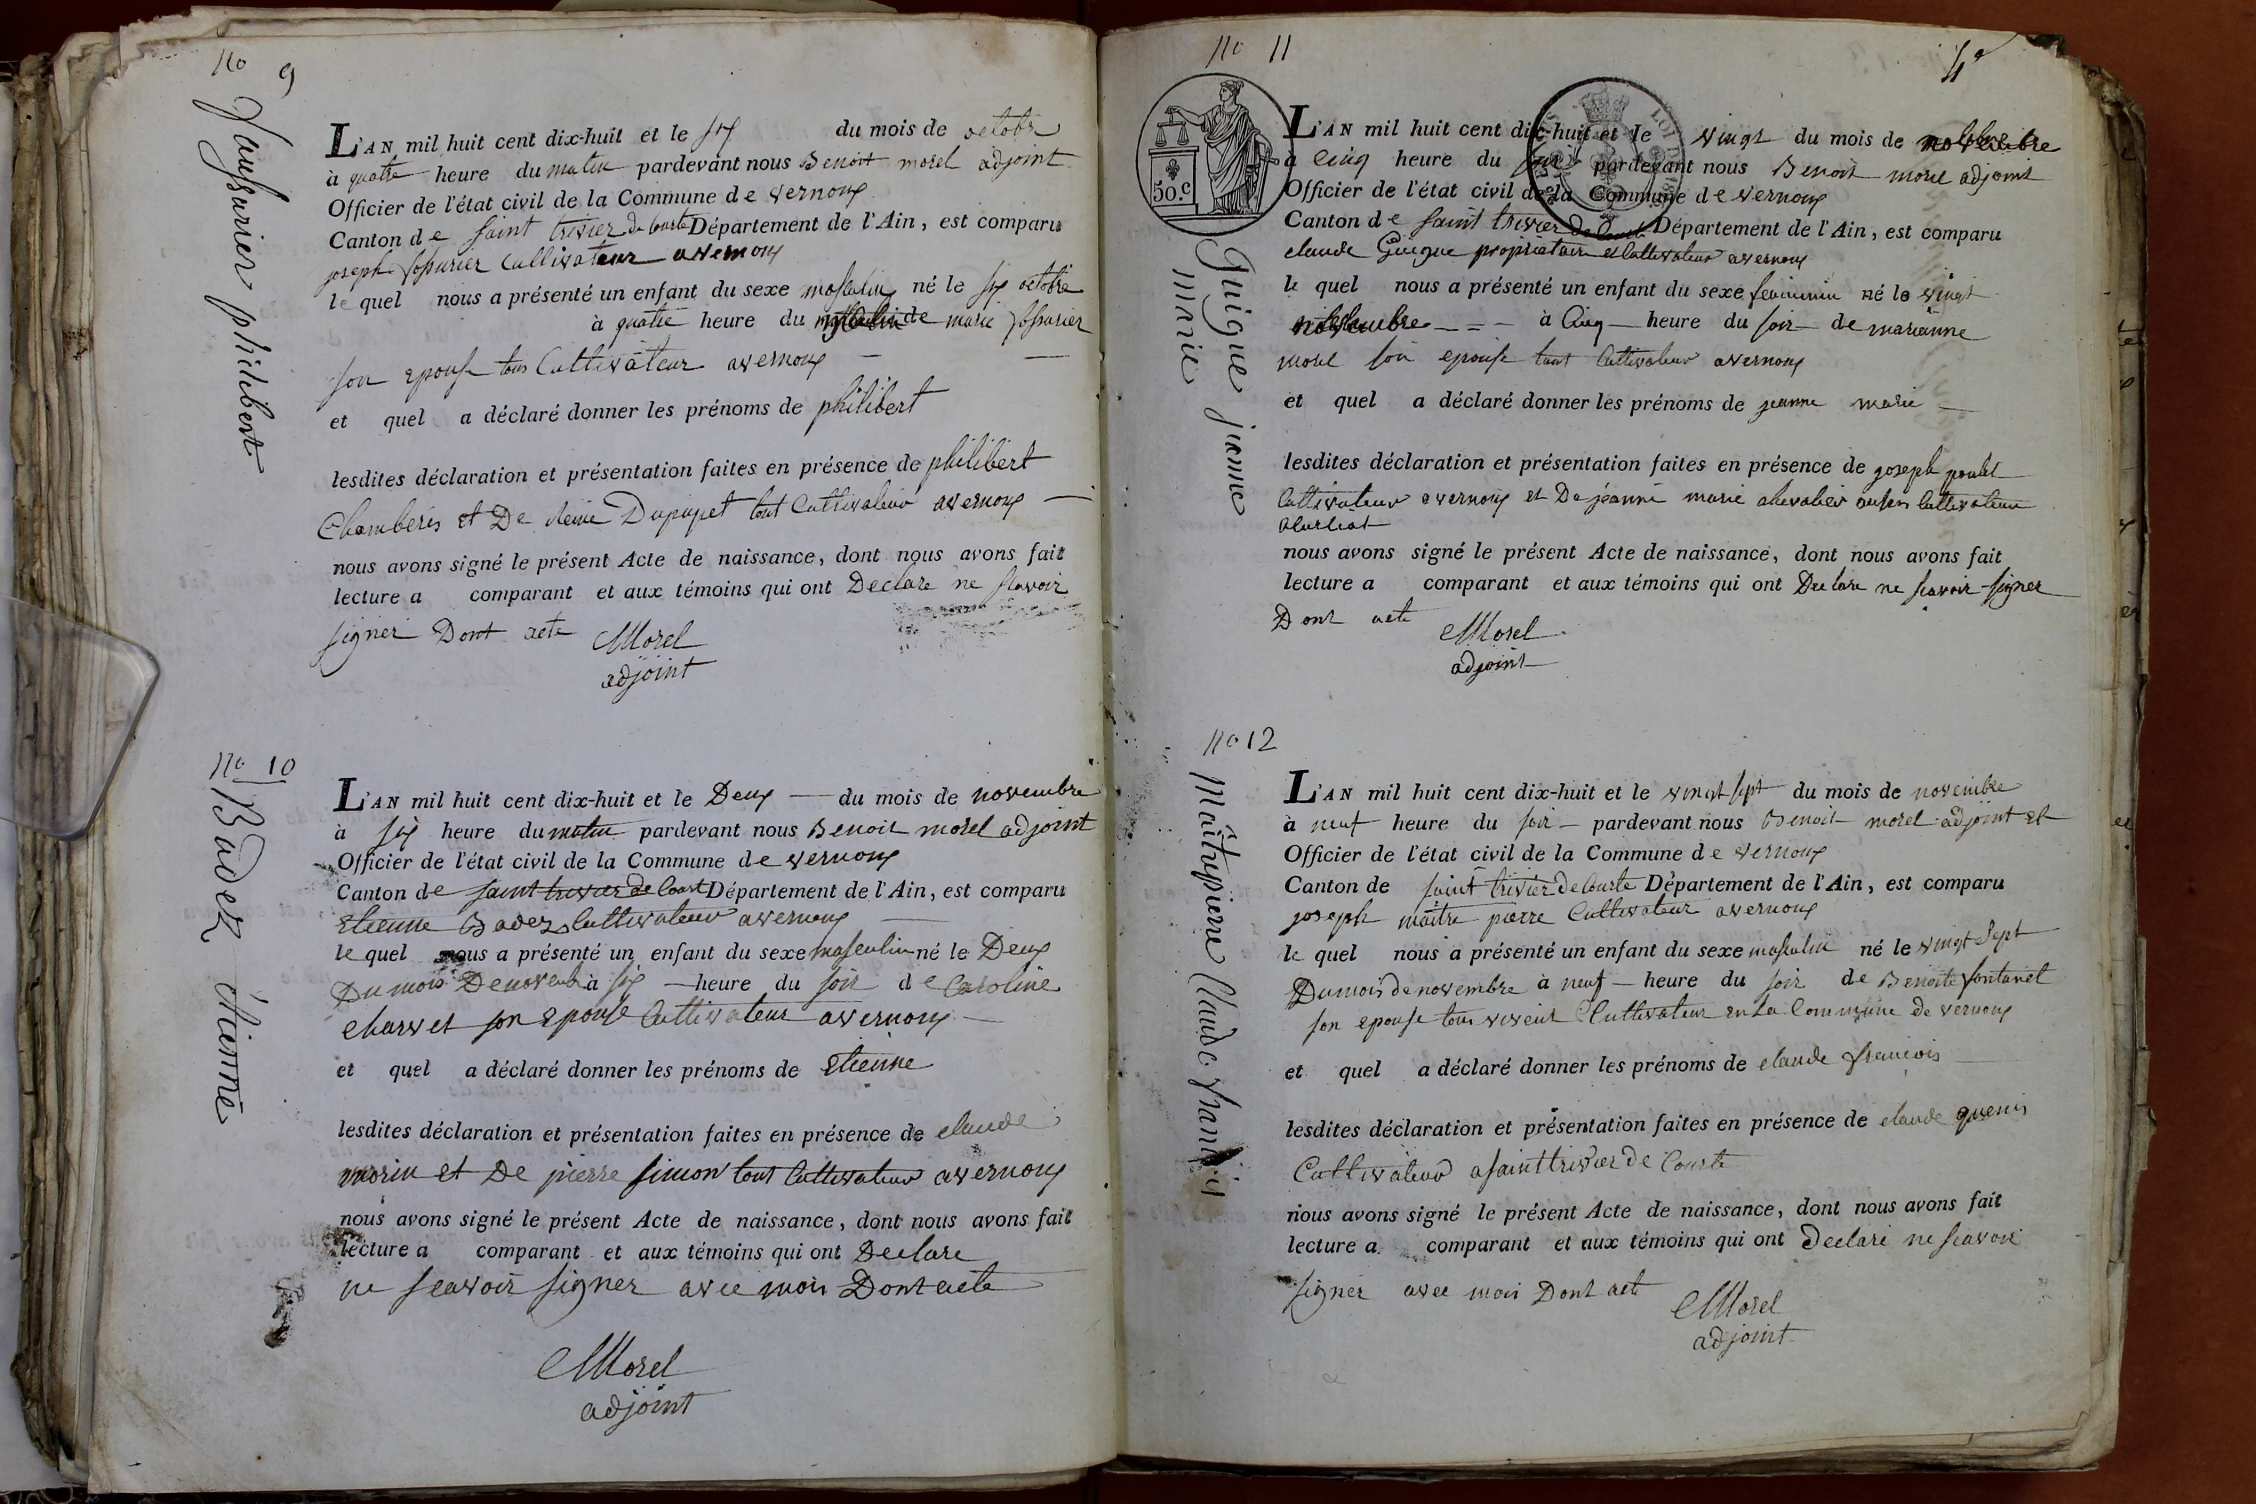 no 9
philibert
L'AN mil huit cent dix-huit et le six du mois de octobr
à quatre heure du matin pardevant nous Benoit morel adjoint
Officier de l'état civil de la Commune de vernoux
Canton de saint trivier de Courte Département de l'Ain, est comparu
joseph cultivateur a vernoux
le quel nous a présenté un enfant du sexe masculin né le six octobre
à quatre heure du de marie
son epouse tous Cultivateur a vernoux
et quel a déclaré donner les prénoms de philibert
lesdites déclaration et présentation faites en présence de philibert
et De Reine tout Cultivateur a vernoux
nous avons signé le présent Acte de naissance, dont nous avons fait
lecture a comparant et aux témoins qui ont Declare ne scavoir
signer Dont acte
Morel
adjoint
no 10
Badez étienne
L'AN mil huit cent dix-huit et le Deux du mois de novembre
à six heure du matin pardevant nous Benoit morel adjoint
Officier de l'état civil de la Commune de vernoux
Canton de saint trivier de Court Département de l'Ain, est comparu
Etienne Badez Cultivateur a vernoux
le quel nous a présenté un enfant du sexe masculin né le Deux
Du mois De novemb à six heure du soir de Caroline
Charvet son epouse Cultivateur a vernoux
et quel a déclaré donner les prénoms de Etienne
lesdites déclaration et présentation faites en présence de claude
morin et De pierre simon tout Cultivateur a vernoux
nous avons signé le présent Acte de naissance, dont nous avons fait
lecture a comparant et aux témoins qui ont Declare
ne scavoir signer avec moi Dont acte
Morel
adjoint
no 11
50.c
Guigue jeanne
marie
L'AN mil huit cent dix-huit et le vingt du mois de novembre
à Cinq heure du soir pardevant nous Benoit morel adjoint
Officier de l'état civil de la Commune de vernoux
Canton de saint trivier de Court Département de l'Ain, est comparu
claude Guigue propriétaire et Cultivateur a vernoux
le quel nous a présenté un enfant du sexe feminin né le vingt
novembre à Cinq heure du soir de marianne
morel son epouse tout Cultivateur a vernoux
et quel a déclaré donner les prénoms de jeanne marie
lesdites déclaration et présentation faites en présence de joseph
Cultivateur a vernoux et De jeanne marie chevalier Cultivateur
a Curciat
nous avons signé le présent Acte de naissance, dont nous avons fait
lecture a comparant et aux témoins qui ont Declare ne scavoir signer
Dont acte
Morel
adjoint
no 12
Maîtrepierre Claude francois
L'AN mil huit cent dix-huit et le vingt sept du mois de novembre
à neuf heure du soir pardevant nous Benoit morel adjoint et
Officier de l'état civil de la Commune de vernoux
Canton de saint trivier de Courte Département de l'Ain, est comparu
joseph maître pierre Cultivateur a vernoux
le quel nous a présenté un enfant du sexe masculin né le vingt Sept
Du mois de novembre à neuf heure du soir de Benoite fontanet
son epouse tous Cultivateur en La Commune de vernoux
et quel a déclaré donner les prénoms de claude francois
lesdites déclaration et présentation faites en présence de claude
Cultivateur a saint trivier de Courte
nous avons signé le présent Acte de naissance, dont nous avons fait
lecture a comparant et aux témoins qui ont declaré ne scavoir
signer avec moi Dont acte
Morel
adjoint